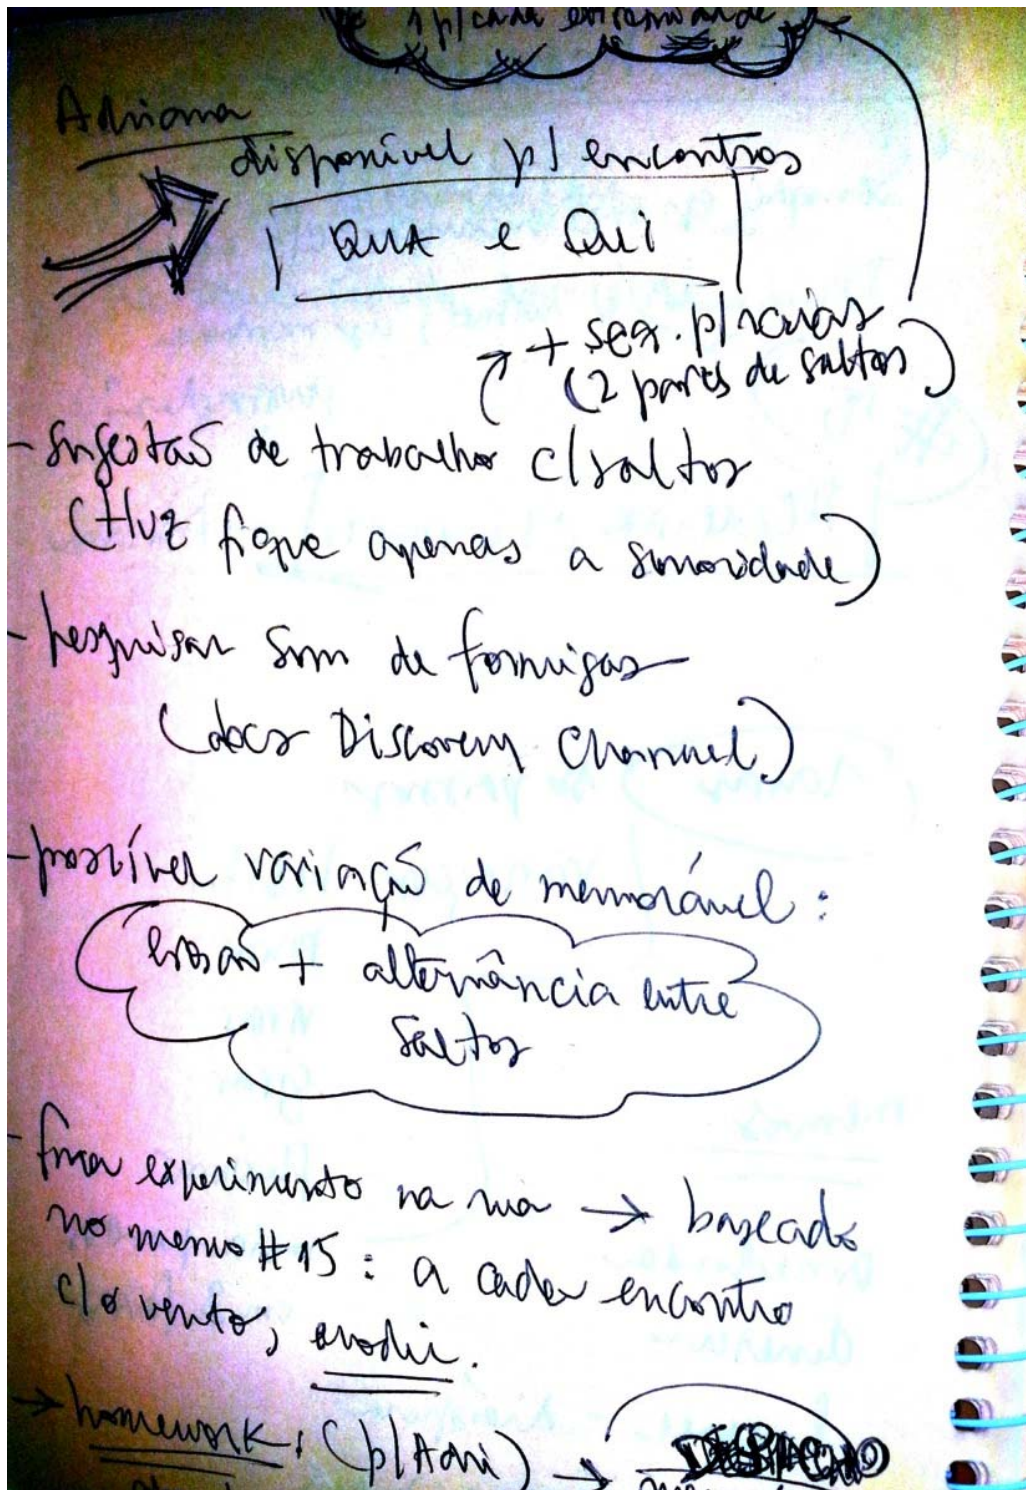 aplicada
Adriana
disponível p/ encontros
QUA e Qui
+ sex. p/
(2 pares de saltos)
- sugestão de trabalho c/ saltos
(+ luz fique apenas a sonoridade)
- pesquisar som de formigas
(docs Discovery Channel)
- possível variação de memorável:
erosão + alternância entre
saltos
- fazer experimento na rua → baseado
no memo #15: a cada encontro
c/ o vento, erodir.
→ homework: (p/ Adri) →